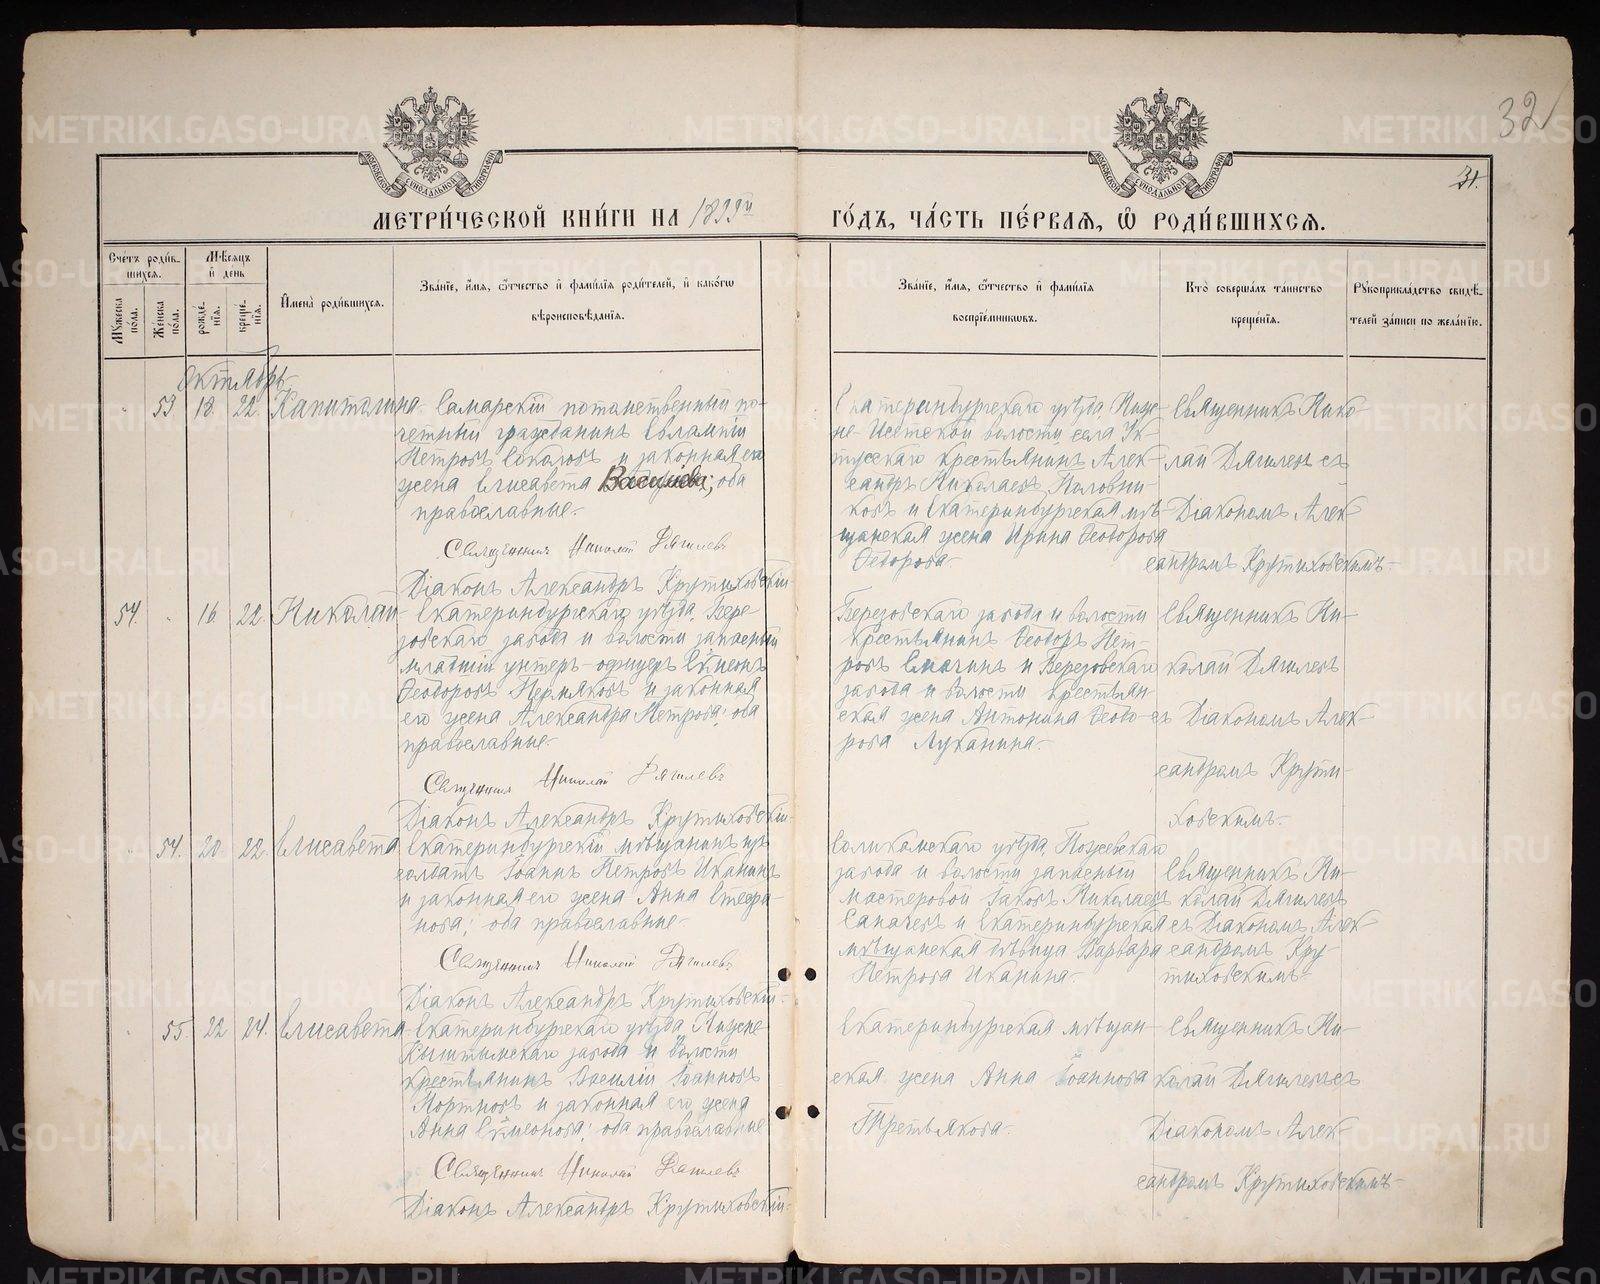 32
31.
МОСКОВСКОЙ СѴНОДАЛЬНОЙ ТИПОГРАФІИ
МОСКОВСКОЙ СѴНОДАЛЬНОЙ ТИПОГРАФІИ
МЕТРИ́ЧЕСКОЙ КНИ́ГИ НА 1899й
ГО́ДЪ, ЧА́СТЬ ПЕ́РВАѦ, Ѽ РОДИ́ВШИХСѦ.
Сче́тъ роди́вшихсѧ.
Мꙋ́жеска по́ла.
Же́нска по́ла.
Мѣ́сѧцъ и҆ де́нь
рожде́нїѧ.
креще́нїѧ.
И҆мена̀ роди́вшихсѧ.
Зва́нїе, и҆́мѧ, ѻ҆́тчество и҆ фами́лїѧ роди́телей, и҆ како́гѡ
вѣроисповѣ́данїѧ.
Зва́нїе, и҆́мѧ, ѻ҆́тчество и҆ фами́лїѧ
воспрїе́мникѡвъ.
Кто̀ соверша́лъ та́инство
креще́нїѧ.
Рꙋкоприкла́дство свидѣ́-
телей за́писи по жела́нїю.
Октябрь
53 18. 22. Капиталина
Самарскій потомственный по-
четный гражданинъ Евлампій
Петровъ Соколовъ и законная его
жена Елисавета Васильева; оба
православные.
Священникъ Николай Дягилевъ
Діаконъ Александръ Крутиховскій
Екатеринбургскаго уѣзда, Ниж-
не-Исетской волости села Ук-
тусскаго крестьянинъ Алек-
сандръ Николаевъ Половни-
ковъ и Екатеринбургская мѣ-
щанская жена Ирина Ѳеодорова
Ѳедорова.
Священникъ Нико-
лай Дягилевъ съ
Діакономъ Алек-
сандромъ Крутиховскимъ.
54. 16. 22. Николай
Екатеринбургскаго уѣзда, Бере-
зовскаго завода и волости запасный
младшій унтеръ-офицеръ Сѵмеонъ
Ѳеодоровъ Пермяковъ и законная
его жена Александра Петрова; оба
православные.
Священникъ Николай Дягилевъ
Діаконъ Александръ Крутиховскій.
Березовскаго завода и волости
крестьянинъ Ѳеодоръ Пет-
ровъ и Березовскаго
завода и волости крестьян-
ская жена Антонина Ѳеодо-
рова Луканина.
Священникъ Ни-
колай Дягилевъ
съ Діакономъ Алек-
сандромъ Крути-
ховскимъ.
54. 20. 22. Елисавета
Екатеринбургскій мѣщанинъ изъ
солдатъ Іоаннъ Петровъ Иканинъ
и законная его жена Анна Стефа-
нова; оба православные.
Священникъ Николай Дягилевъ
Діаконъ Александръ Крутиховскій.
Соликамскаго уѣзда, Пожевскаго
завода и волости запасный
мастеровой Іаковъ Николаевъ
и Екатеринбургская
мѣщанская дѣвица Варвара
Петрова Иканина.
Священникъ Ни-
колай Дягилевъ
съ Діакономъ Алек-
сандромъ Кру-
тиховскимъ.
55. 22. 24. Елисавета
Екатеринбургскаго уѣзда, Нижне-
Кыштымскаго завода и волости
крестьянинъ Василій Іоанновъ
Портновъ и законная его жена
Анна Сѵмеонова; оба православные
Священникъ Николай Дягилевъ
Діаконъ Александръ Крутиховскій.
Екатеринбургская мѣщан-
ская жена Анна Іоаннова
Третьякова.
Священникъ Ни-
колай Дягилевъ съ
Діакономъ Алек-
сандромъ Крутиховскимъ.
METRIKI.GASO-URAL.RU